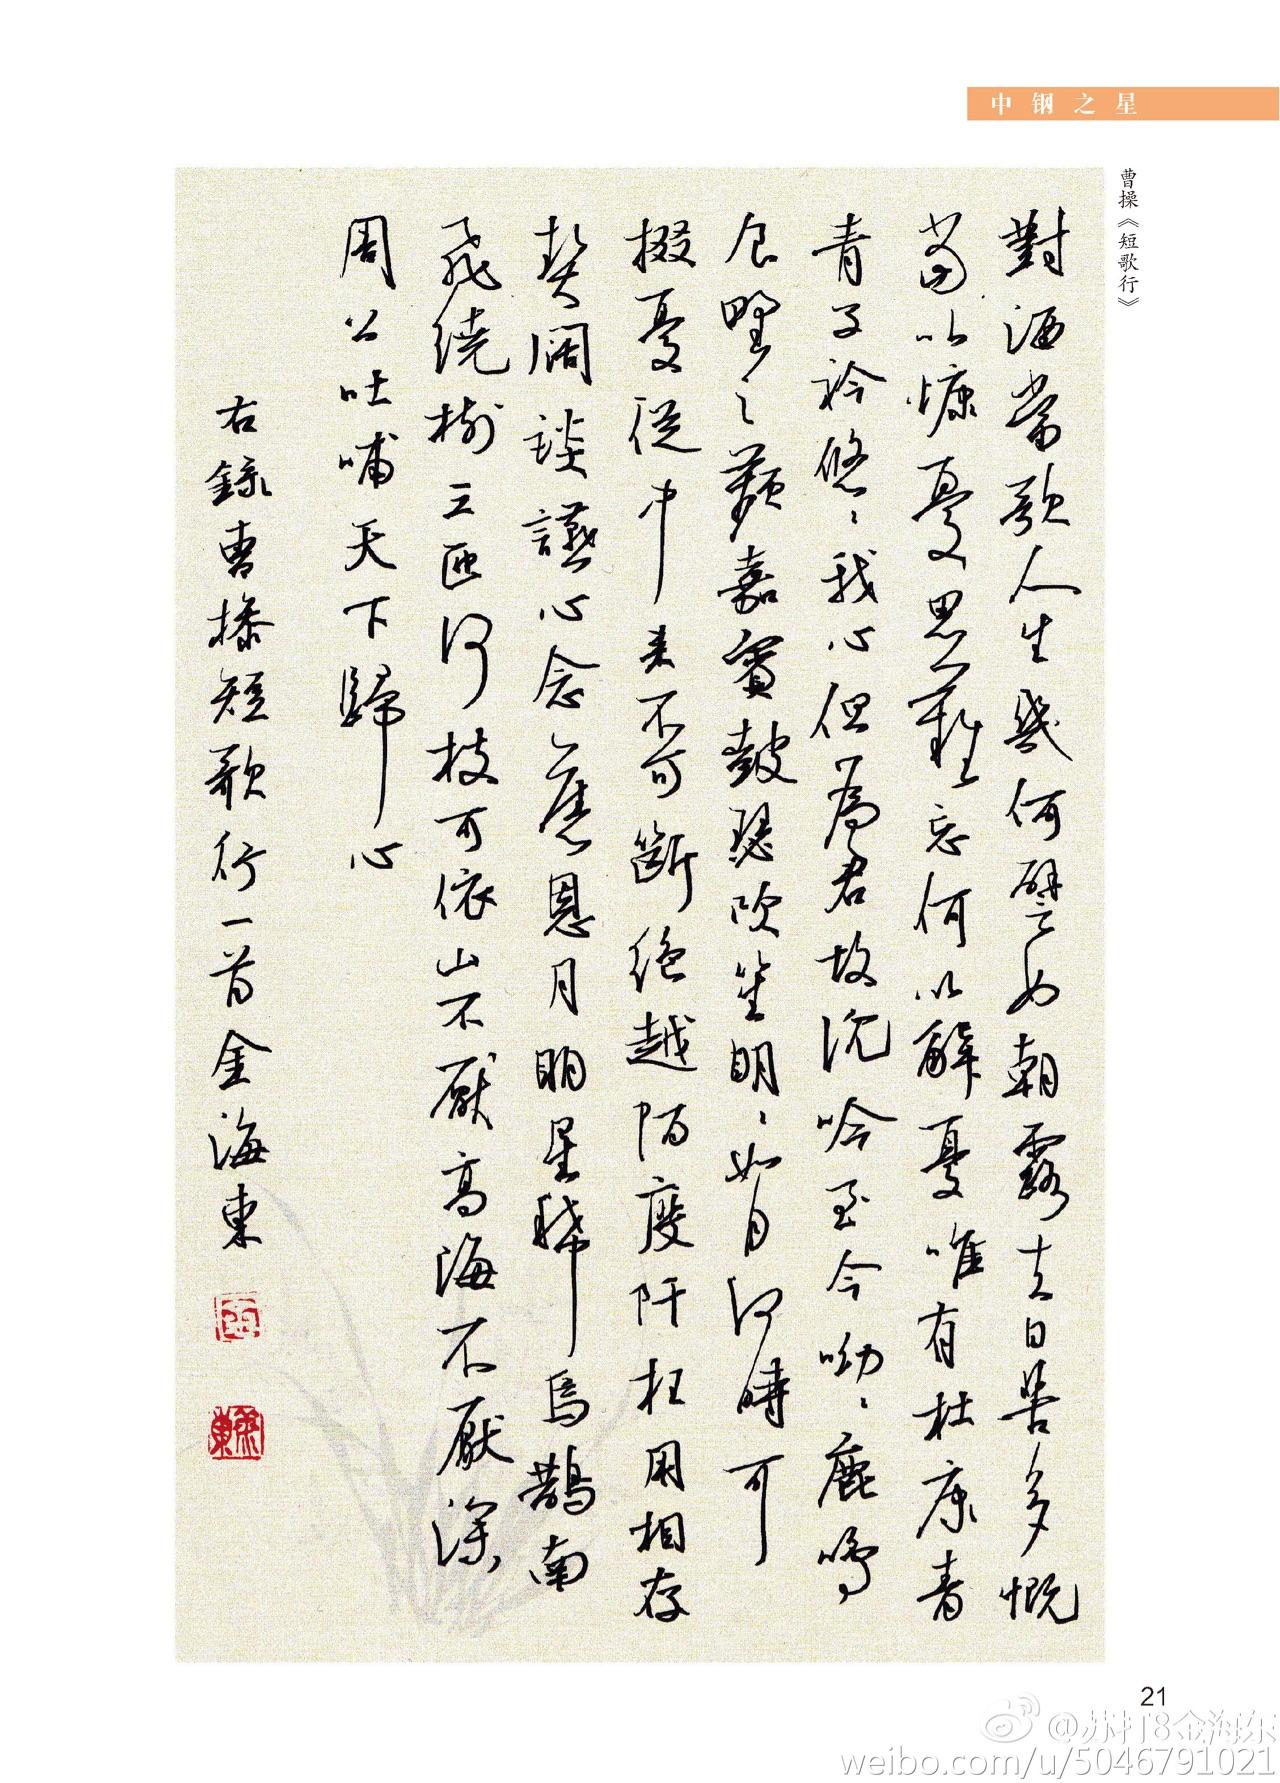 中钢之星
曹操《短歌行》
對酒當歌人生幾何譬如朝露去日苦多慨
當以慷憂思難忘何以解憂唯有杜康青
青子衿悠々我心但為君故沉吟至今呦々鹿鳴
食野之蘋嘉賓鼓瑟吹笙明々如月何時可
掇憂從中來不可斷絕越陌度阡枉用相存
契闊談讌心念舊恩月明星稀烏鵲南
飛繞樹三匝何枝可依山不厭高海不厭深
周公吐哺天下歸心
右錄曹操短歌行一首金海東
21
@苏打8金海东
weibo.com/u/5046791021